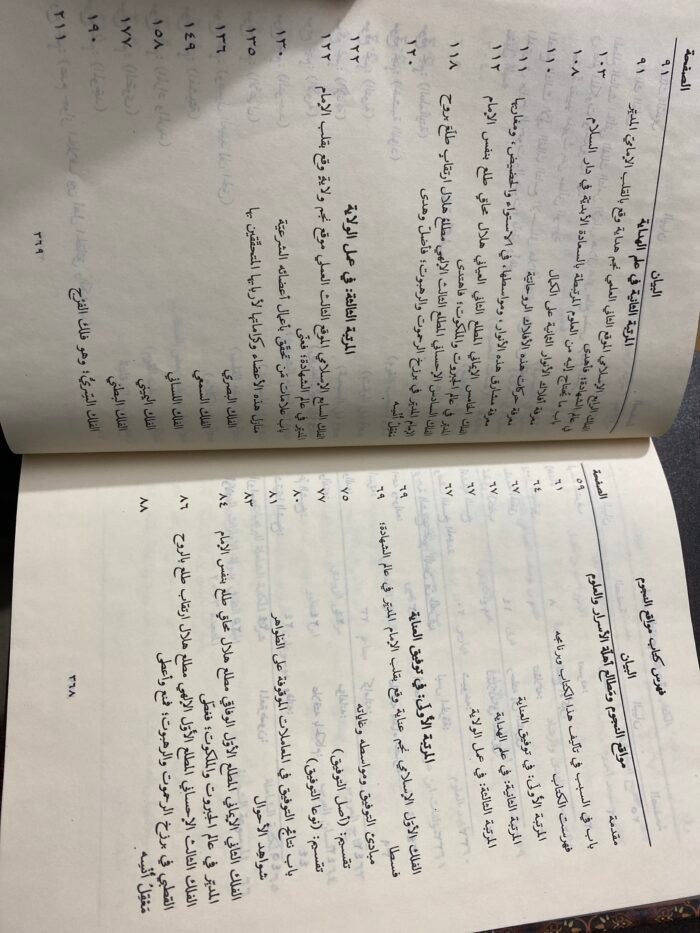 فهرس كتاب مواقع النجوم
البيان الصفحة
مواقع النجوم ومَطالع أهلة الأسرار والعلوم
مقدمة ٥٩
باب في السبب في تأليف هذا الكتاب وبرنامجه ٦١
فهرست الكتاب ٦٤
المرتبة الأُولَى: في توفيق العناية ٦٧
المرتبة الثانية: في علم الهداية ٦٧
المرتبة الثالثة: في عمل الولاية ٦٧
المرتبة الأُولَى: في توفيق العناية ٦٩
الفلك الأوّل الإسلامي نجم عناية وقع بقلب الإمام المدبّر في عالم الشهادة؛
فسطا ٦٩
مبادئ التوفيق ومواسطه وغاياته ٧٥
تقسم: (أصل التوفيق) ٧٧
تقسم: (نوعا التوفيق) ٨٠
باب نتائج التوفيق في المعاملات الموقوفة على الظواهر ٨١
شواهد الأحوال ٨٣
الفلك الثاني الإيماني المطلع الأوّل الوفاقي مطلع هلال محاقي طلع بنفس الإمام
المدبّر في عالم الجبروت والملكوت؛ فغطّى ٨٤
الفلك الثالث الإحساني المطلع الأوّل الإلهي مطلع هلال ارتقاب طلع بالروح
القطبي في برزخ الرحموت والرهبوت؛ فمنع وأعطى ٨٦
مَعْقِلُ أُنْسِه ٨٨
٣٦٨
البيان الصفحة
المرتبة الثانية في علم الهداية ٩١
الفلك الرابع الإسلامي الموقع الثاني العلمي نجم هداية وقع بالقلب الإمامي المدبّر
في عالم الشهادة؛ فأهدى ٩١
باب ما يُحتاج إليه من العلوم المرتبطة بالسعادة الأبدية في دار السلام ١٠٣
معرفة أفلاك الأنوار الثانية على الكمال ١٠٨
معرفة حركات هذه الأفلاك الروحانية ١١٠
معرفة مشارق هذه الأنوار، ومواسطها، في الاستواء والحضيض، ومغاربها ١١١
الفلك الخامس الإيماني المطلع الثاني العياني هلال محاقي طلع بنفس الإمام
المدبّر في عالم الجبروت والملكوت؛ فاهتدى ١١٢
الفلك السادس الإحساني المطلع الثالث الإلهي مطلع هلال ارتقاب طلع بروح
الإمام المدبّر في برزخ الرحموت والرهبوت؛ فأضلّ وهدى ١١٨
مَعْقِلُ أُنْسِه ١٢٠
المرتبة الثالثة: في عمل الولاية ١٢٢
الفلك السابع الإسلامي الموقع الثالث العملي موقع نجم ولاية وقع بقلب الإمام
المدبّر في عالم الشهادة؛ فعنّى ١٢٢
باب علامات مَن تحقّق بأعمال أعضائه الشرعيّة ١٣٠
منازل هذه الأعضاء وكراماتها لأربابها المتحقّقين بها ١٣٥
الفلك البصري ١٣٦
الفلك السمعي ١٤٩
الفلك اللساني ١٥٨
الفلك اليميني ١٧٧
الفلك البطني ١٩٠
وهو فلك الفَرْج ٢١١
٣٦٩